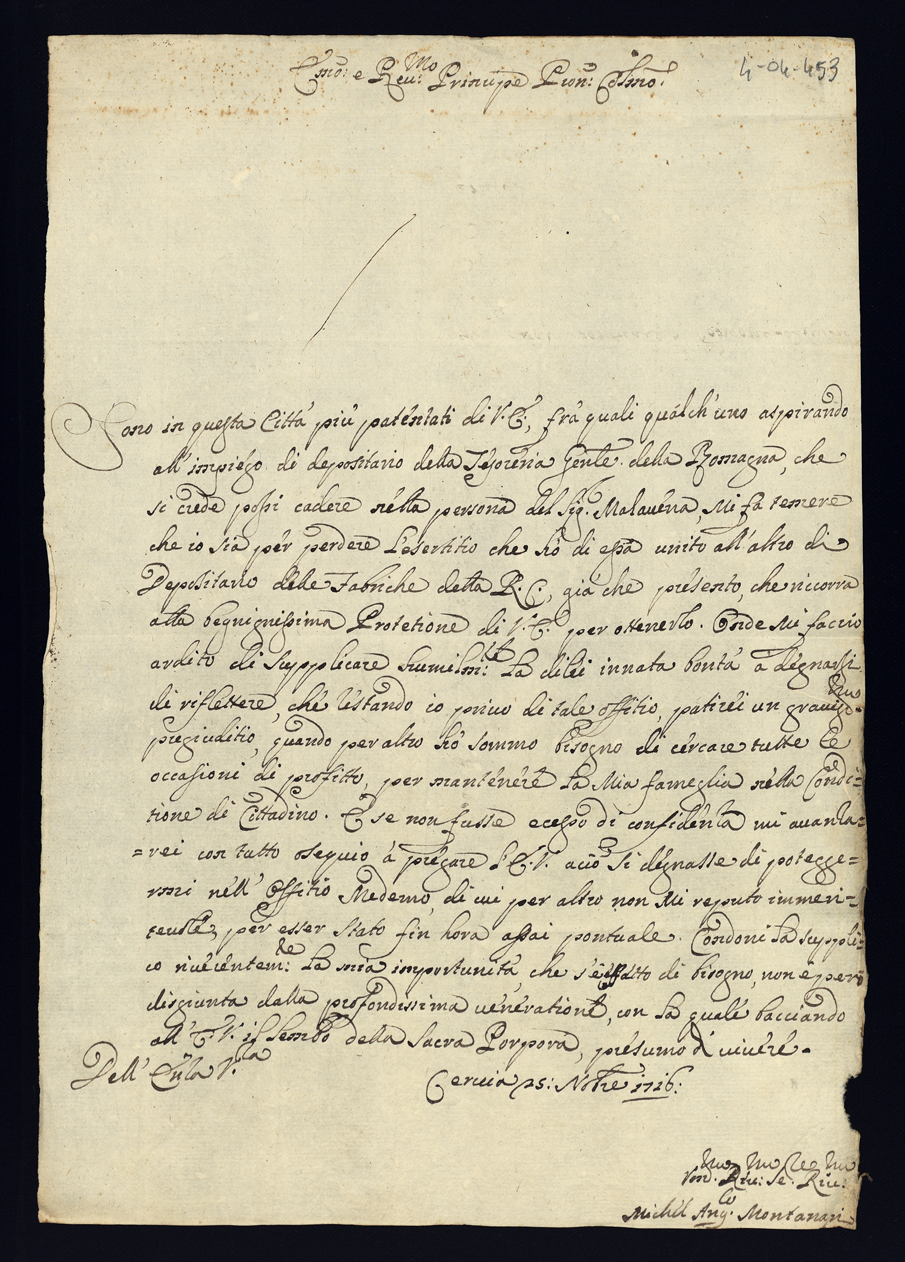 4-04-453
E.mo: e Reu:mo Principe Pron: Col.mo:
Sono in questa Città più patentati di V.E., frà quali qualch'uno aspirando
all'impiego di depositario della Tesoreria Gen.le della Romagna, che
si crede possi cadere nella persona del Sig.r Malauena, Mi fà temere
che io sia per perdere l'esertitio che hò di essa unito all'altro di
Depositario delle Fabriche della R.C., già che presento, che ricorra
alla begnignissima Protetione di V.E. per ottenerlo. Onde Mi faccio
ardito di supplicare humilm:te la di lei innata bontà a degnarsi
di riflettere, che restando io priuo di tale offitio, patirei un grauiss:mo
pregiuditio, quando per altro hò sommo bisogno di cercare tutte le
occasioni di profitto, per mantenere la Mia fameglia nella Condi=
tione di Cittadino. E se non fusse ecesso di confidenza mi auanza=
=rei con tutto osequio à pregare l'E.V. acciò si degnasse di potegge=
rmi nell'Offitio Medemo, di cui per altro non Mi reputo immeri=
teuole, per esser stato fin hora assai pontuale. Condoni la suppli=
co riuerentem:te la mia importunità, che s'è effetto di bisogno, non è però
disgiunta dalla profondissima ueneratione, con la quale bacciando
all'E.V. il lembo della Sacra Porpora, presumo di uiuere.
Dell'E.V.
Ceruia 25: Nobre 1716:
Vm.mo Diu:mo Se.re Riu:mo
Michel Ang.lo Montanari